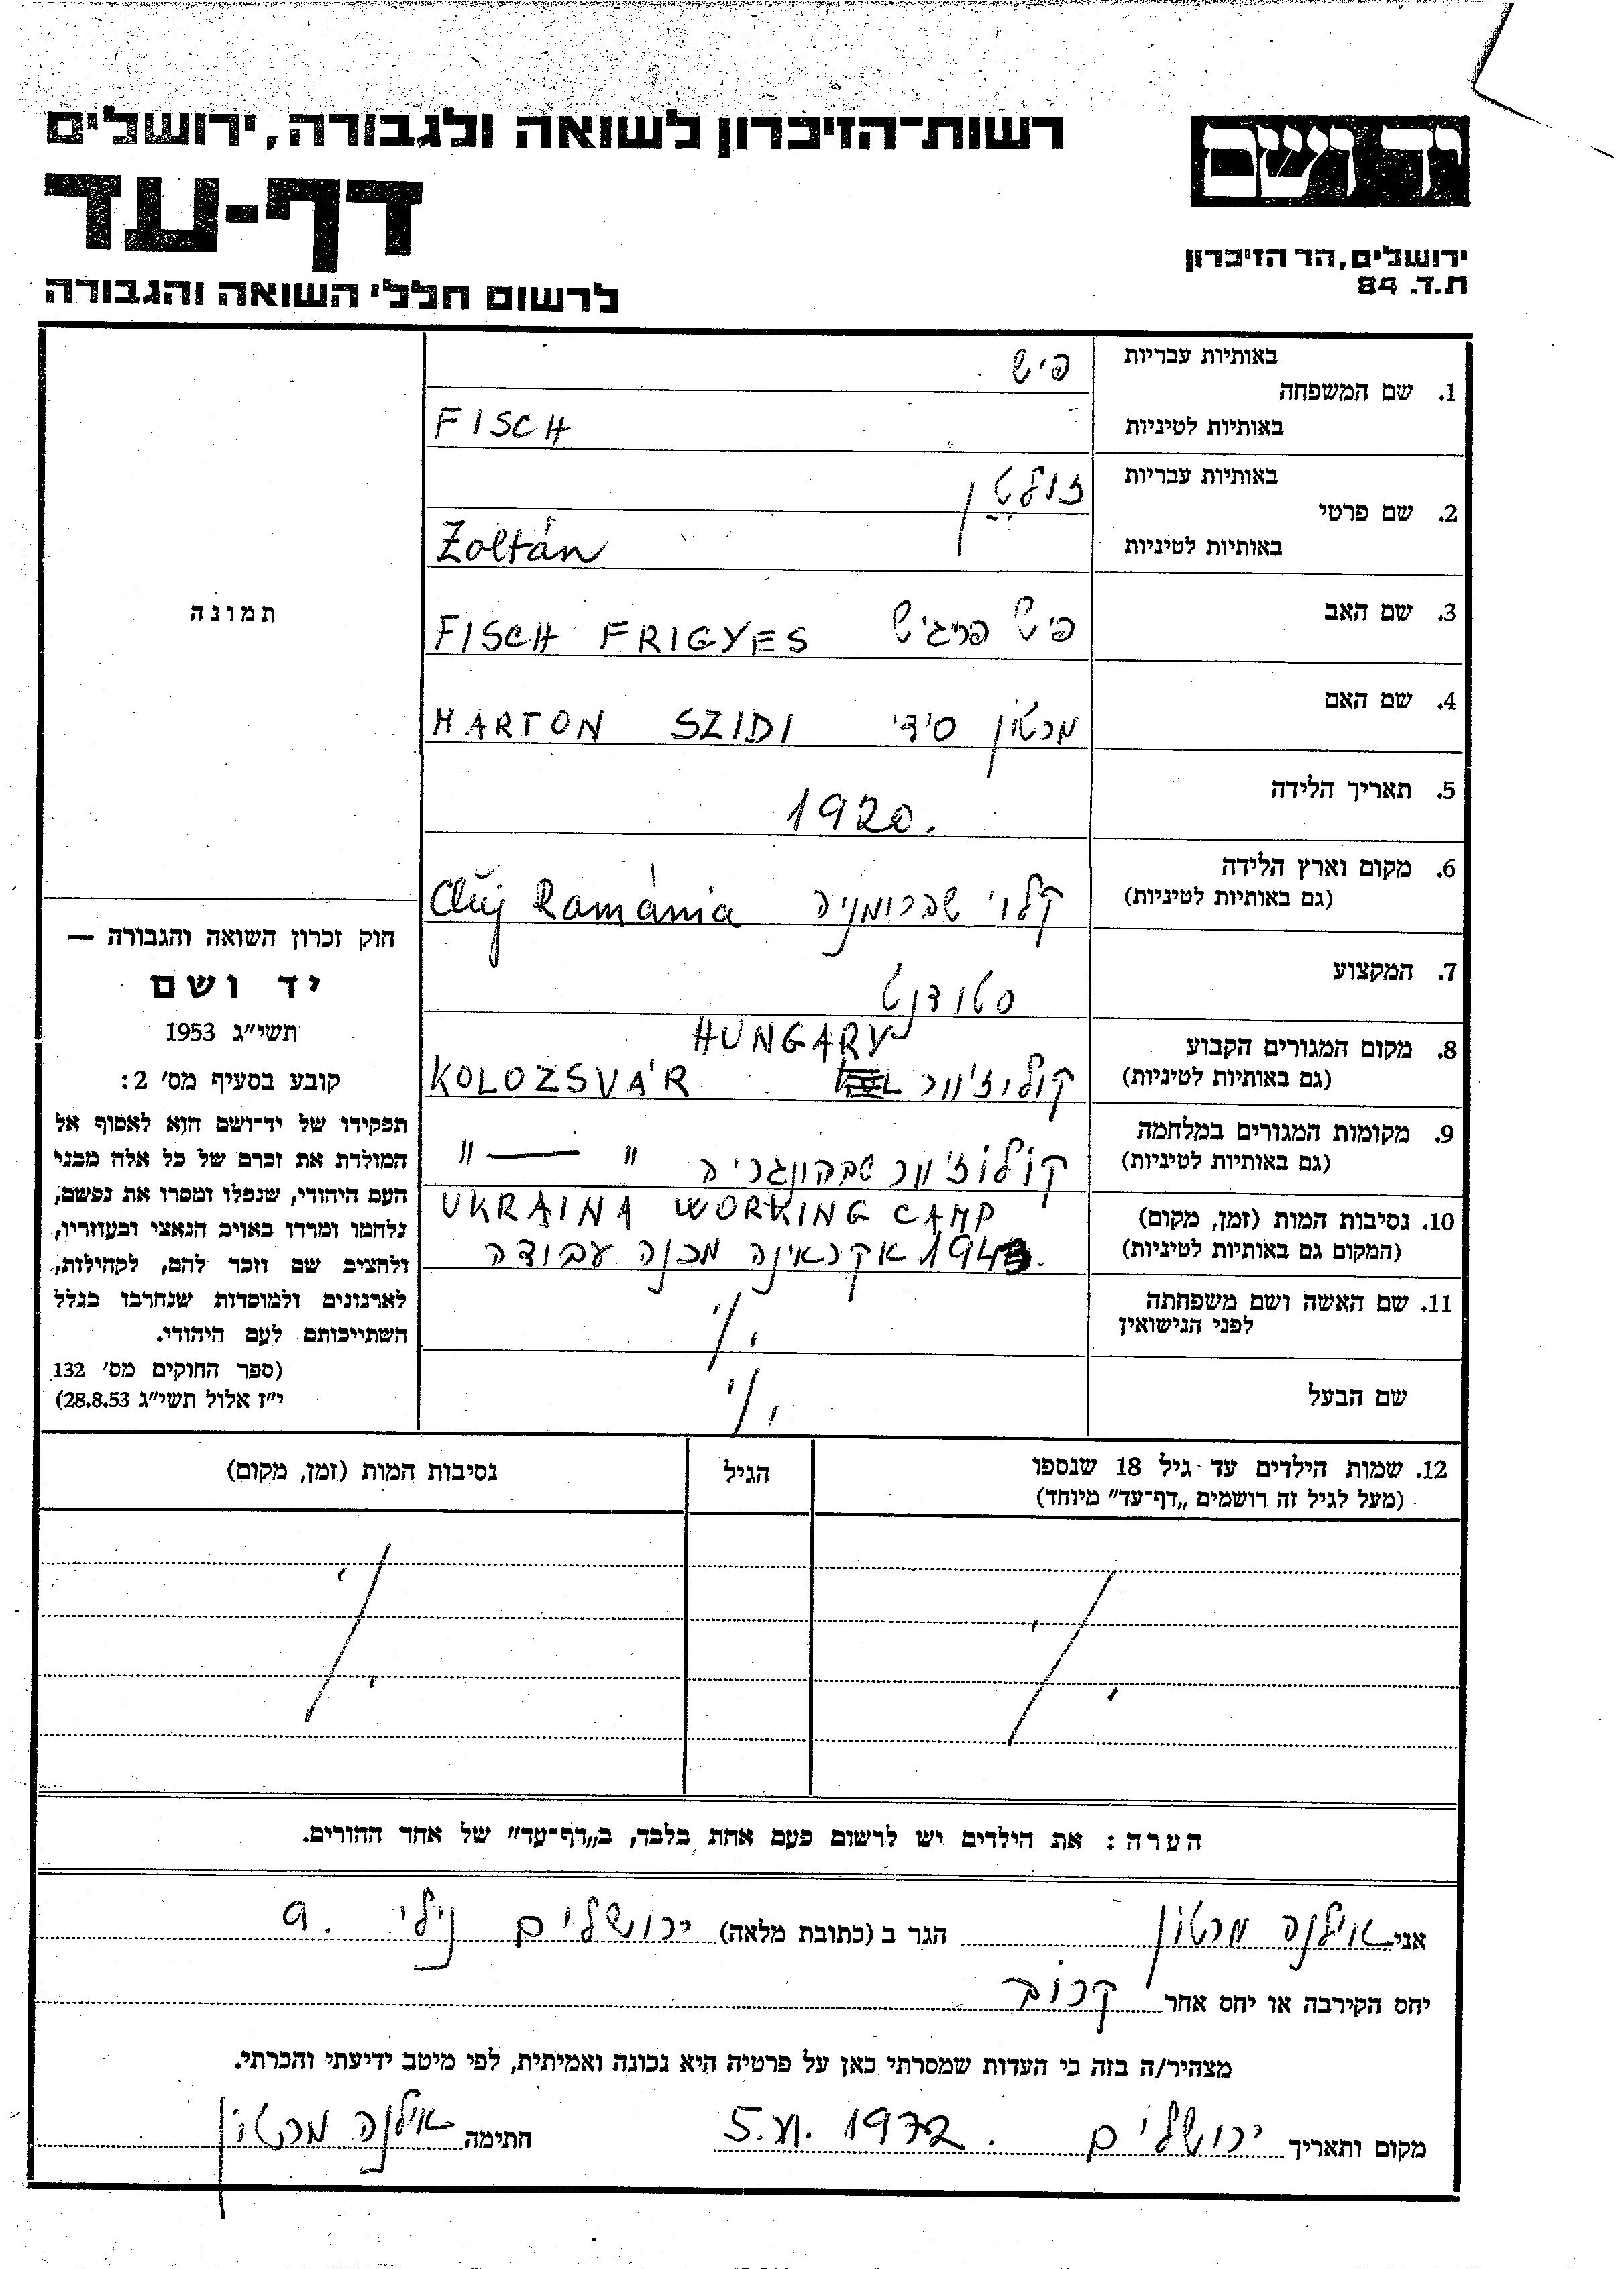 רשות-הזיכרון לשואה ולגבורה, ירושלים
יד ושם
דף-עד
ירושלים, הר הזיכרון
ת.ד. 84
לרשום חללי השואה והגבורה
באותיות עבריות
פיש
1. שם המשפחה
באותיות לטיניות
FISCH
באותיות עבריות
זולטן
2. שם פרטי
באותיות לטיניות
Zoltán
3. שם האב
פיש פריגיש FISCH FRIGYES
4. שם האם
מרטון סידי MARTON SZIDI
5. תאריך הלידה
1920.
6. מקום וארץ הלידה
(גם באותיות לטיניות)
קלוי שברומניה Cluj Románia
7. המקצוע
סטודנט
8. מקום המגורים הקבוע
(גם באותיות לטיניות)
HUNGARY
קולוז'וור KOLOZSVÁR
9. מקומות המגורים במלחמה
(גם באותיות לטיניות)
קולוז'וור שבהונגריה " — "
10. נסיבות המות (זמן, מקום)
(המקום גם באותיות לטיניות)
UKRAINA WORKING CAMP
1943. אקראינה מחנה עבודה
11. שם האשה ושם משפחתה
לפני הנישואין
·/·
שם הבעל
·/·
תמונה
חוק זכרון השואה והגבורה —
יד ושם
תשי"ג 1953
קובע בסעיף מס' 2:
תפקידו של יד-ושם הוא לאסוף אל
המולדת את זכרם של כל אלה מבני
העם היהודי, שנפלו ומסרו את נפשם,
נלחמו ומרדו באויב הנאצי ובעוזריו,
ולהציב שם וזכר להם, לקהילות,
לארגונים ולמוסדות שנחרבו בגלל
השתייכותם לעם היהודי.
(ספר החוקים מס' 132
י"ז אלול תשי"ג 28.8.53)
12. שמות הילדים עד גיל 18 שנספו
(מעל לגיל זה רושמים „דף-עד" מיוחד)
הגיל
נסיבות המות (זמן, מקום)
·/·
·/·
הערה: את הילדים יש לרשום פעם אחת בלבד, ב„דף-עד" של אחד ההורים.
אני אילנה מרטון הגר ב (כתובת מלאה) ירושלים נילי 9.
יחס הקירבה או יחס אחר קרוב
מצהיר/ה בזה כי העדות שמסרתי כאן על פרטיה היא נכונה ואמיתית, לפי מיטב ידיעתי והכרתי.
מקום ותאריך ירושלים. 5.VI. 1972 חתימה אילנה מרטון